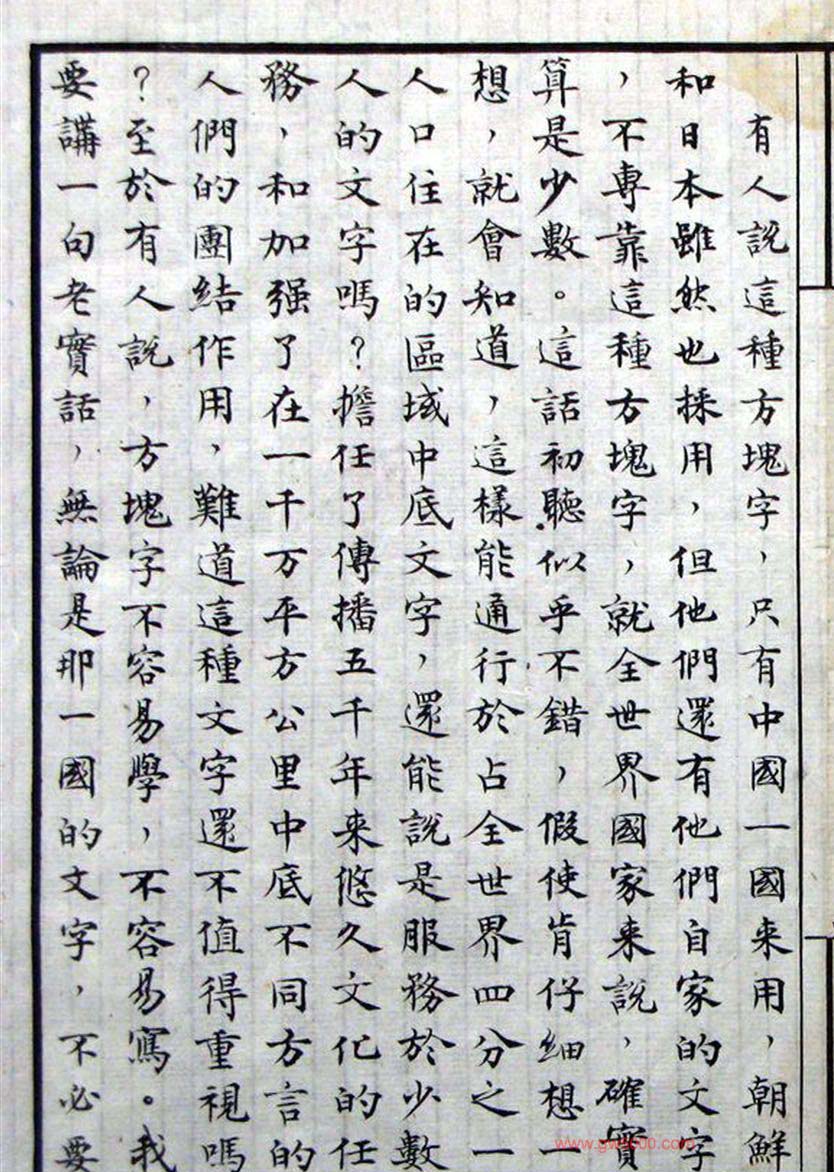 有人說這種方塊字，只有中國一國来用，朝鮮
和日本雖然也採用，但他們還有他們自家的文字
，不專靠這種方塊字，就全世界國家来說，確實
算是少數。這話初聽似乎不錯，假使肯仔細想一
想，就會知道，這樣能通行於占全世界四分之一
人口住在的區域中底文字，還能說是服務於少數
人的文字嗎？擔任了傳播五千年来悠久文化的任
務，和加强了在一千万平方公里中底不同方言的
人們的團結作用，難道這種文字還不值得重視嗎
？至於有人說，方塊字不容易學，不容易寫。我
要講一句老實話，無論是那一國的文字，不必要